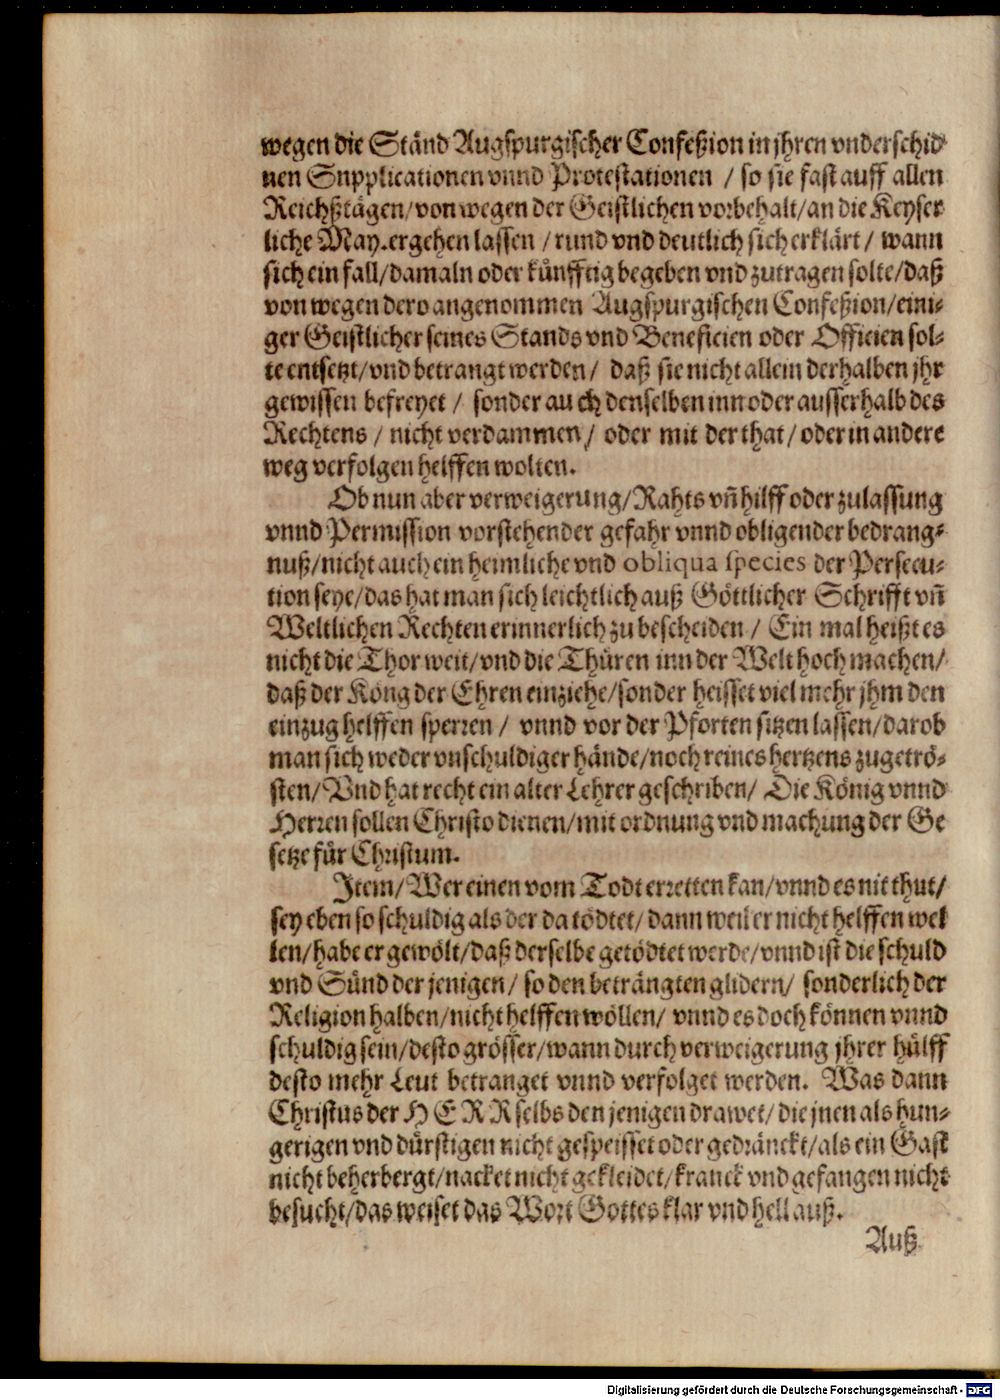 wegen die Ständ Augspurgischer Confeßion in jhren vnderschid
nen Snpplicationen vnnd Protestationen / so sie fast auff allen
Reichßtägen/von wegen der Geistlichen vorbehalt/an die Keyser
liche May.ergehen lassen /rund vnd deutlich sich erklärt/ wann
sich ein fall/damaln oder künfftig begeben vnd zutragen solte/daß
von wegen dero angenommen Augspurgischen Confeßion/eini-
ger Geistlicher seines Stands vnd Beneficien oder Officien sol-
te entsetzt/vnd betrangt werden/ daß sie nicht allein derhalben jhr
gewissen befreyet / sonder auch denselben inn oder ausserhalb des
Rechtens / nicht verdammen/ oder mit der that/oder in andere
weg verfolgen helffen wolten.
Ob nun aber verweigerung/Rahts vñ hilff oder zulassung
vnnd Permission vorstehender gefahr vnnd obligender bedrang-
nuß/nicht auch ein heimliche vnd obliqua species der Persecu-
tion seye/das hat man sich leichtlich auß Göttlicher Schrifft vñ
Weltlichen Rechten erinnerlich zu bescheiden / Ein mal heißt es
nicht die Thor weit/vnd die Thüren inn der Welt hoch machen/
daß der Köng der Ehren einziehe/sonder heisset viel mehr jhm den
einzug helffen sperren / vnnd vor der Pforten sitzen lassen/darob
man sich weder vnschuldiger hände/noch reines hertzens zugetrö-
sten/Vnd hat recht ein alter Lehrer geschriben/ Die König vnnd
Herren sollen Christo dienen/mit ordnung vnd machung der Ge
setze für Christum.
Item/Wer einen vom Todt erretten kan/vnnd es nit thut/
sey eben so schuldig als der da tödtet/dann weil er nicht helffen wel
len/habe er gewölt/daß derselbe getödtet werde/vnnd ist die schuld
vnd Sünd der jenigen/ so den beträngten glidern/ sonderlich der
Religion halben/nicht helffen wöllen/ vnnd es doch können vnnd
schuldig sein/desto grösser/wann durch verweigerung jhrer hülff
desto mehr Leut betranget vnnd verfolget werden. Was dann
Christus der HERR selbs den jenigen drawet/die jnen als hun-
gerigen vnd dürstigen nicht gespeisset oder gedränckt/als ein Gast
nicht beherbergt/nacket nicht gekleidet/kranck vnd gefangen nicht
besucht/das weiset das Wort Gottes klar vnd hell auß.
Auß
Digitalisierung gefördert durch die Deutsche Forschungsgemeinschaft - DFG